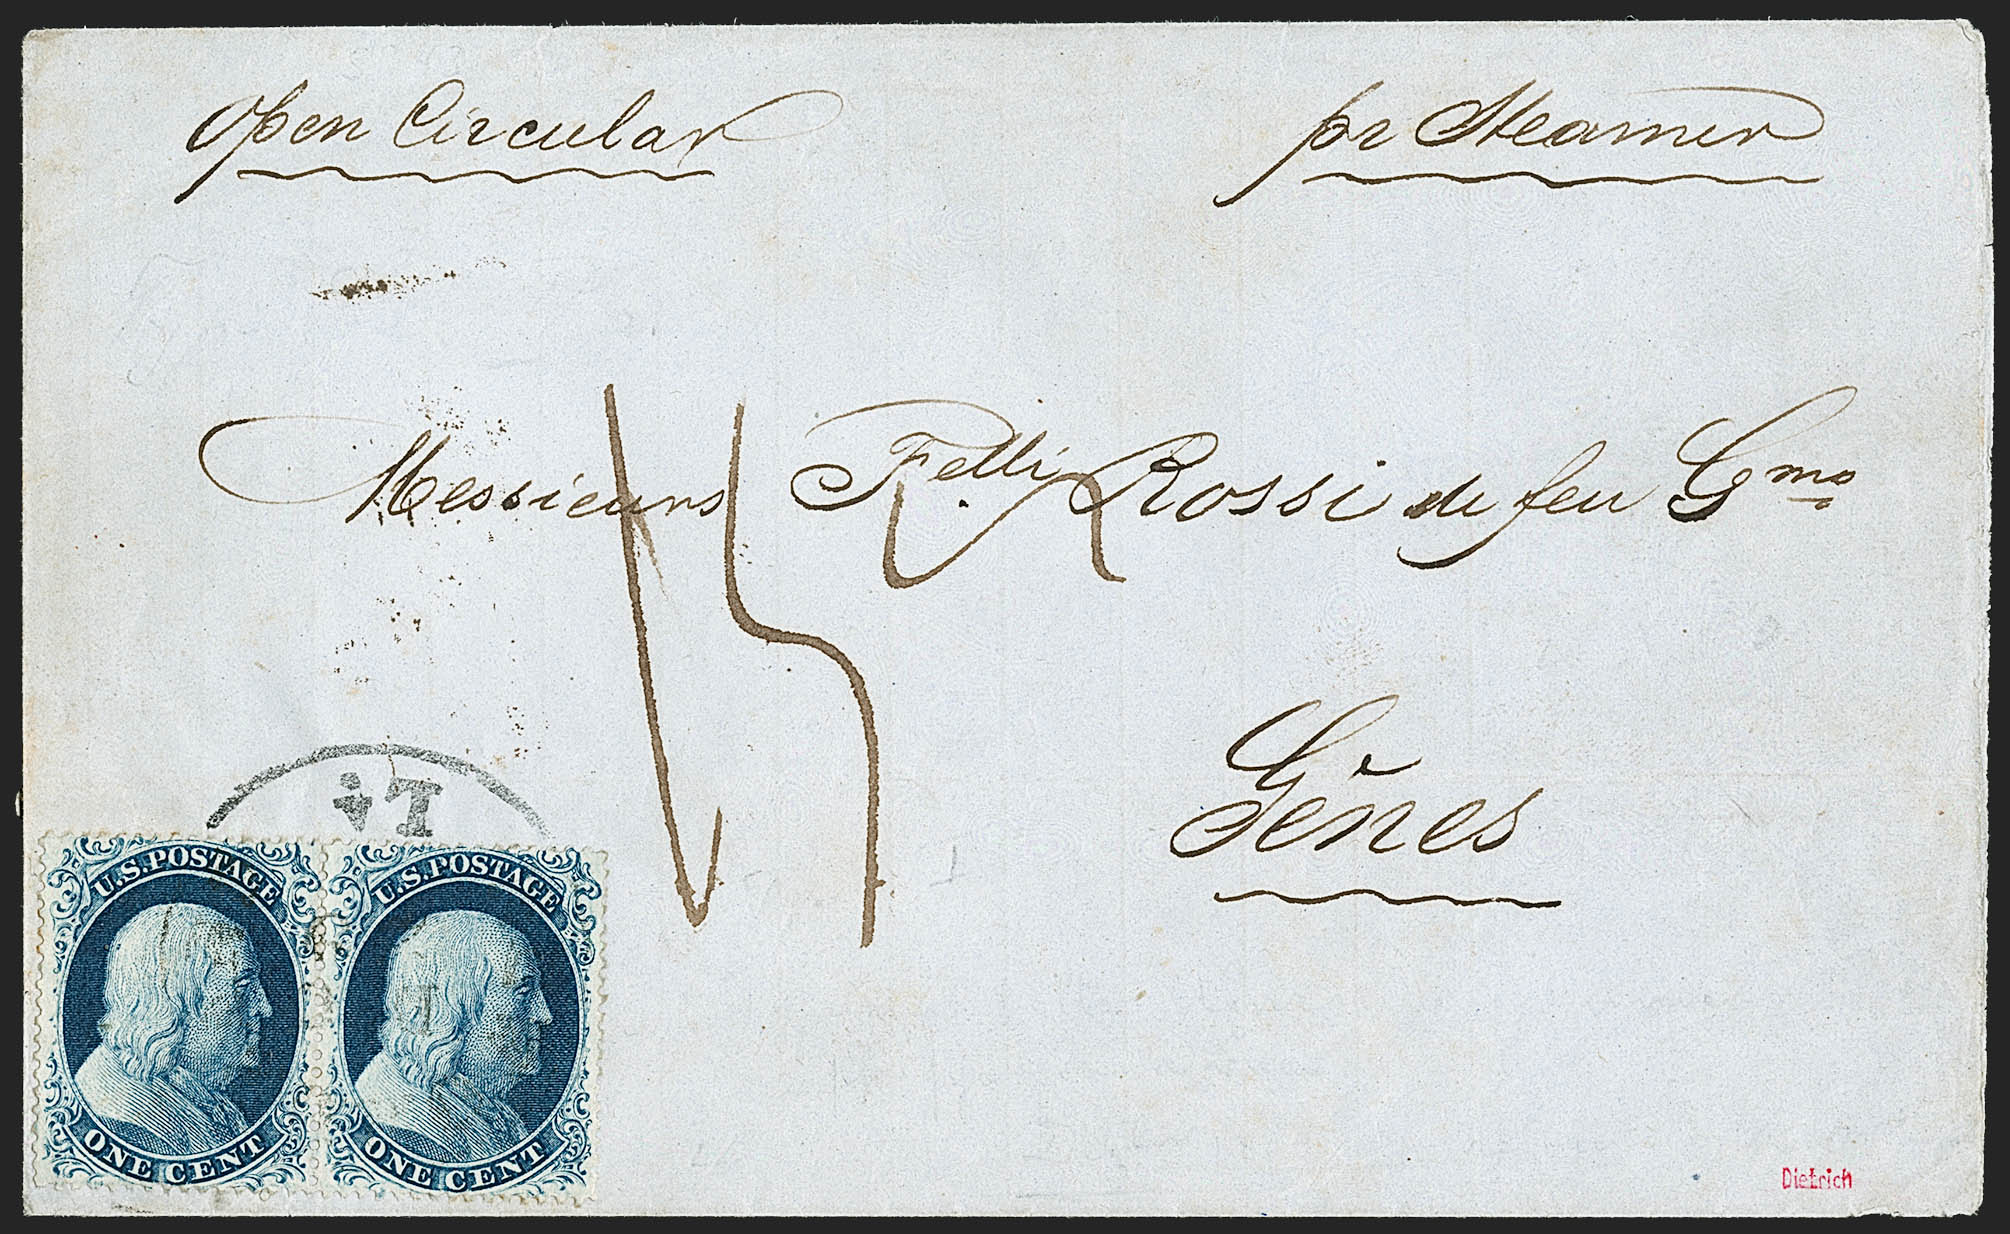 Open Circular
pr Steamer
Messieurs Flli Rossi de feu Gmo
15
Gênes
U.S. POSTAGE
ONE CENT
U.S. POSTAGE
ONE CENT
Dietrich